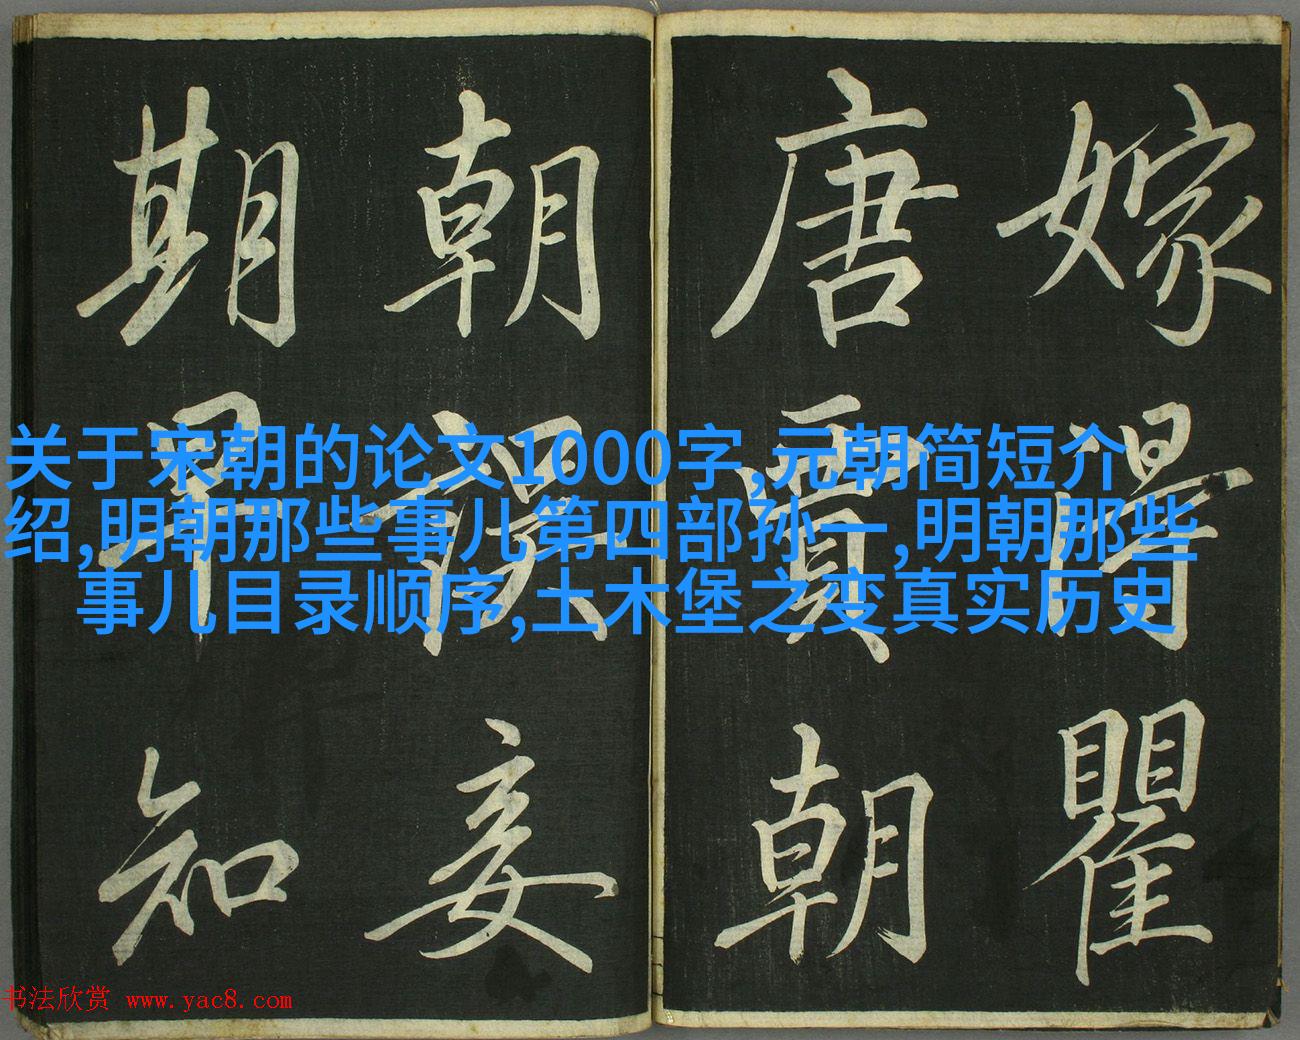 嫁得瞿
唐賈朝
朝誤妾
期早知
关于宋朝的论文1000字,元朝简短介
绍,明朝那些事儿第四部孙一,明朝那些
事儿目录顺序,土木堡之变真实历史
书法欣赏 www.yac8.com